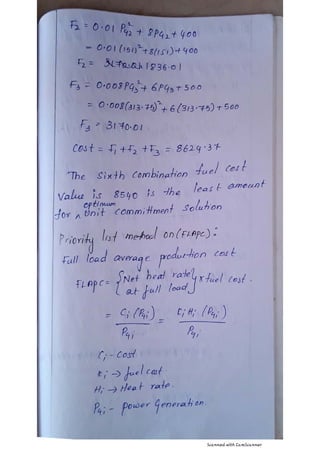 F₂ = 0.01 PG₂² + 8PG₂ + 400
= 0.01(151)² + 8(151) + 400
F₂ = 1836.01
F₃ = 0.008PG₃² + 6PG₃ + 500
= 0.008(313.75)² + 6(313.75) + 500
F₃ = 3170.01
Cost = F₁ + F₂ + F₃ = 8624.37
The sixth combination fuel cost
Value is 8540 is the least amount
optimum
for ^ Unit committment solution
Priority list method on (FLAPC):
Full load average production cost
FLAPC = {Net heat rate at full load} x fuel cost.
= Ci (PGi) / PGi = Ki Hi (PGi) / PGi
Ci - Cost
Ki → fuel cost
Hi → Heat rate.
PGi - power Generation.
Scanned with CamScanner